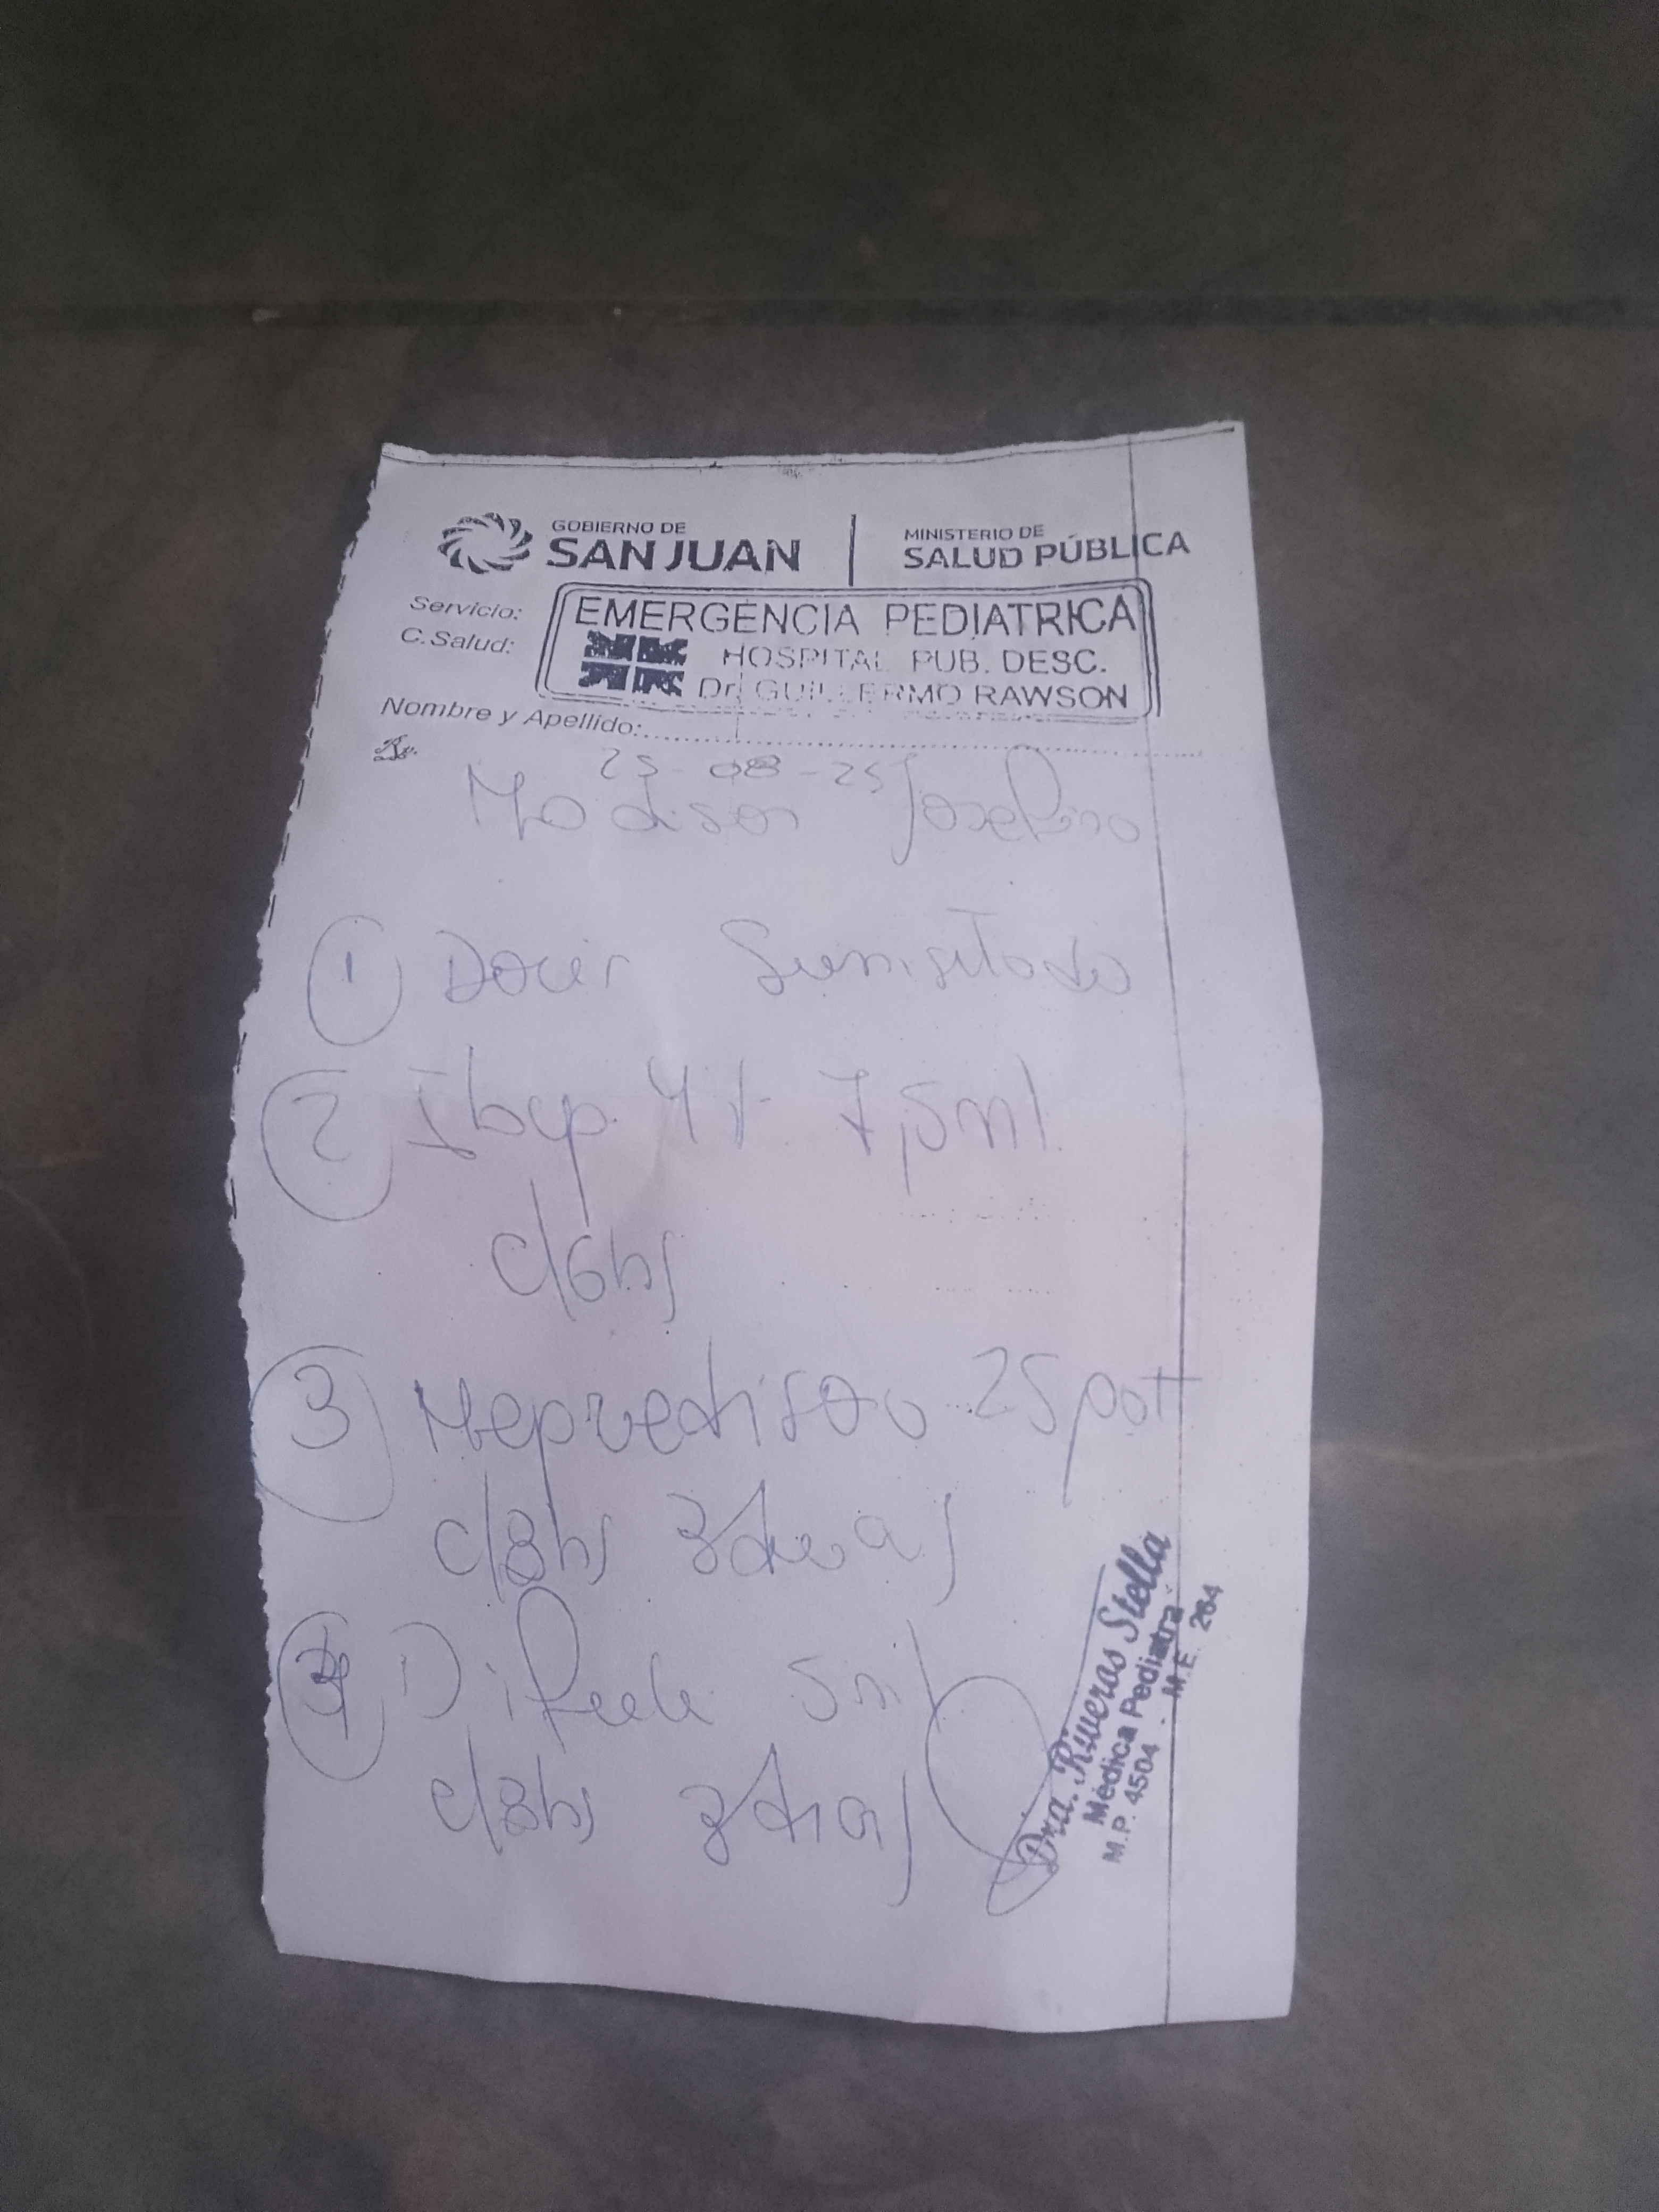 GOBIERNO DE
SAN JUAN
MINISTERIO DE
SALUD PÚBLICA
Servicio:
C.Salud:
EMERGENCIA PEDIATRICA
HOSPITAL PUB. DESC.
Dr. GUILLERMO RAWSON
Nombre y Apellido:
Rp.
25-08-25
Madison Josefina
① Dormir Semisentada
② Ibup 4% 7,5ml
c/6hs
③ Meprediso 25 got
c/8hs 3 dias
④ 5ml
c/8hs 3 dias
Dra. Riveros Stella
Médica Pediatra
M.P. 4504 - M.E. 264